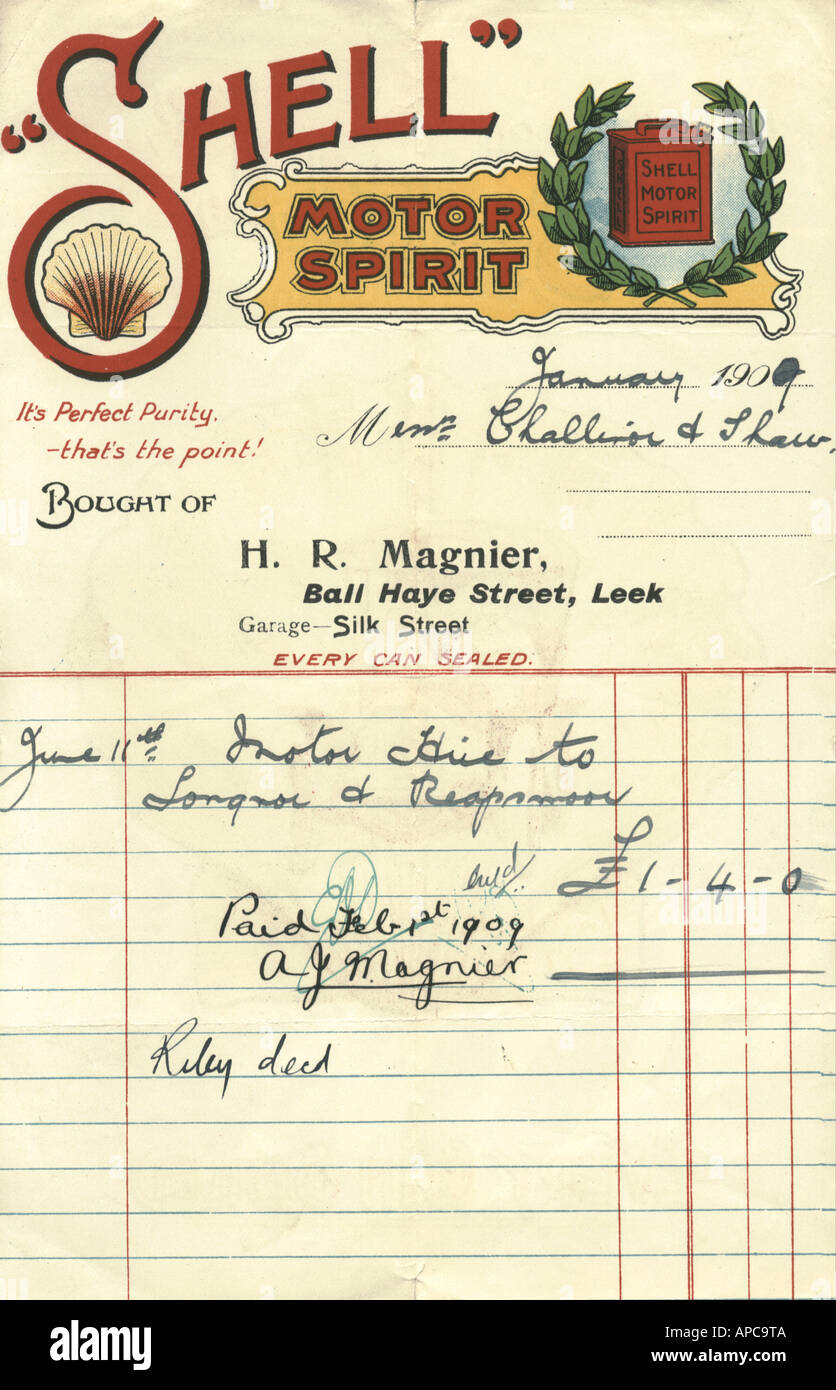 "SHELL"
MOTOR
SPIRIT
SHELL
MOTOR
SPIRIT
SHELL
January 1909
It's Perfect Purity,
-that's the point!
Messrs Challinor & Shaw.
BOUGHT OF
H. R. Magnier,
Ball Haye Street, Leek
Garage-Silk Street
EVERY CAN SEALED.
June 11th Motor Hire to
Longnor & Reapsmoor
£1-4-0
Paid Feb 1st 1909
A J Magnier
Riley decd
alamy
Image ID: APC9TA
www.alamy.com